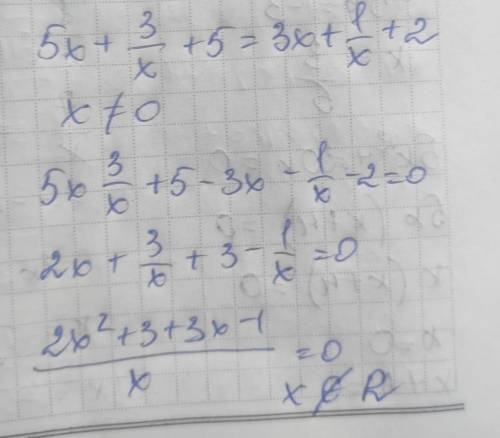 5x + 3/x + 5 = 3x + 1/x + 2
x ≠ 0
5x 3/x + 5 - 3x - 1/x - 2 = 0
2x + 3/x + 3 - 1/x = 0
(2x² + 3 + 3x - 1)/x = 0
x ∉ R